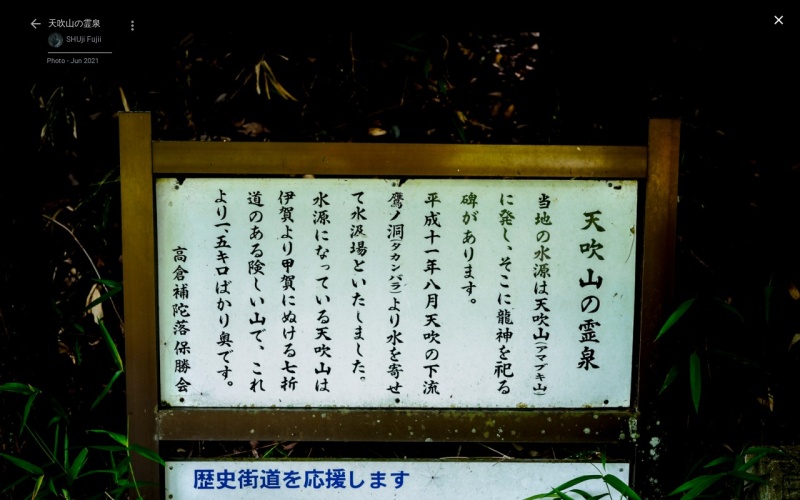 天吹山の霊泉
SHUji Fujii
Photo - Jun 2021
天吹山の霊泉
当地の水源は天吹山(アマブキ山)
に発し、そこに龍神を祀る
碑があります。
平成十一年八月天吹の下流
鷹ノ洞(タカンバラ)より水を寄せ
て水汲場といたしました。
水源になっている天吹山は
伊賀より甲賀にぬける七折
道のある険しい山で、これ
より一、五キロばかり奥です。
高倉補陀落保勝会
歴史街道を応援します